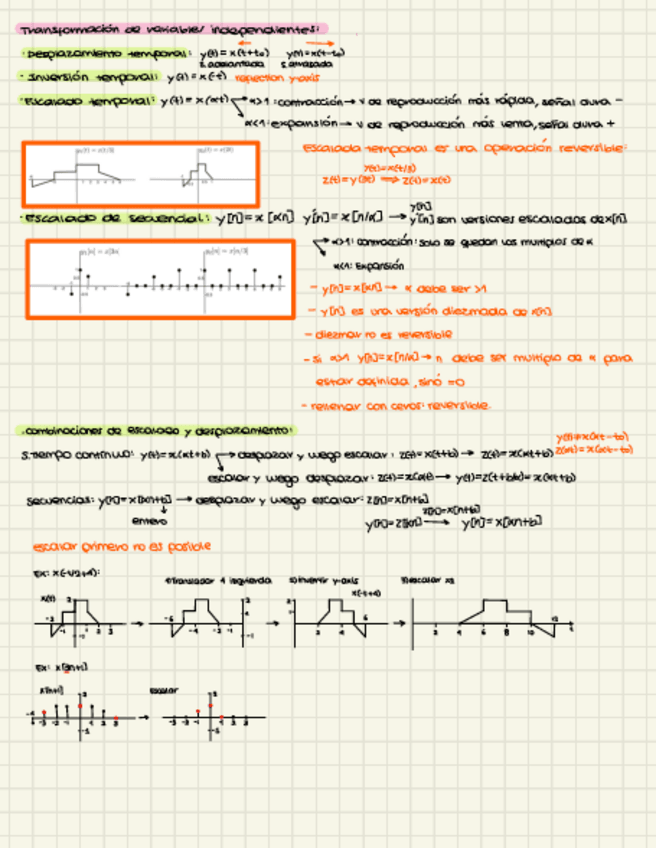 Transformación de variables independientes:
· Desplazamiento temporal: y(t)=x(t+t₀) y(t)=x(t-t₀)
s. adelantada s. atrasada
· Inversión temporal: y(t)=x(-t) reflection y-axis
· Escalado temporal: y(t)=x(αt) α>1: contracción → v de reproducción más rápida, señal dura -
α<1: expansión → v de reproducción más lenta, señal dura +
escalada temporal es una operación reversible:
y(t)=x(t/3)
z(t)=y(3t) → z(t)=x(t)
· Escalado de secuencial: y[n]=x[αn] y[n]=x[n/α] → y[n] son versiones escaladas de x[n]
y[n]
α>1: contracción: solo se quedan los multiplos de α
α<1: Expansión
- y[n]=x[αn] → α debe ser >1
- y[n] es una versión diezmada de x[n]
- diezmar no es reversible
- si α>1 y[n]=x[n/α] → n debe ser multiplo de α para
estar definida, sinó =0
- rellenar con ceros: reversible.
· combinaciones de escalado y desplazamiento:
y(t)=x(αt-t₀)
s. tiempo continuo: y(t)=x(αt+b) desplazar y luego escalar: z(t)=x(t+b) → z(αt)=x(αt+b)
z(αt)=x(αt-t₀)
escalar y luego desplazar: z(t)=x(αt) → y(t)=z(t+b/α)=x(αt+b)
secuencias: y[n]=x[αn+b] → desplazar y luego escalar: z[n]=x[n+b]
entero
z[n]=x[n+b]
y[n]=z[αn] → y[n]=x[αn+b]
escalar primero no es posible
EX: x(-t/2+4):
1) Translador 4 izquierda 2) invertir y-axis 3) escalar x2
x(t) x(-t+4)
EX: x[3n+1]
x[n+1] escalar